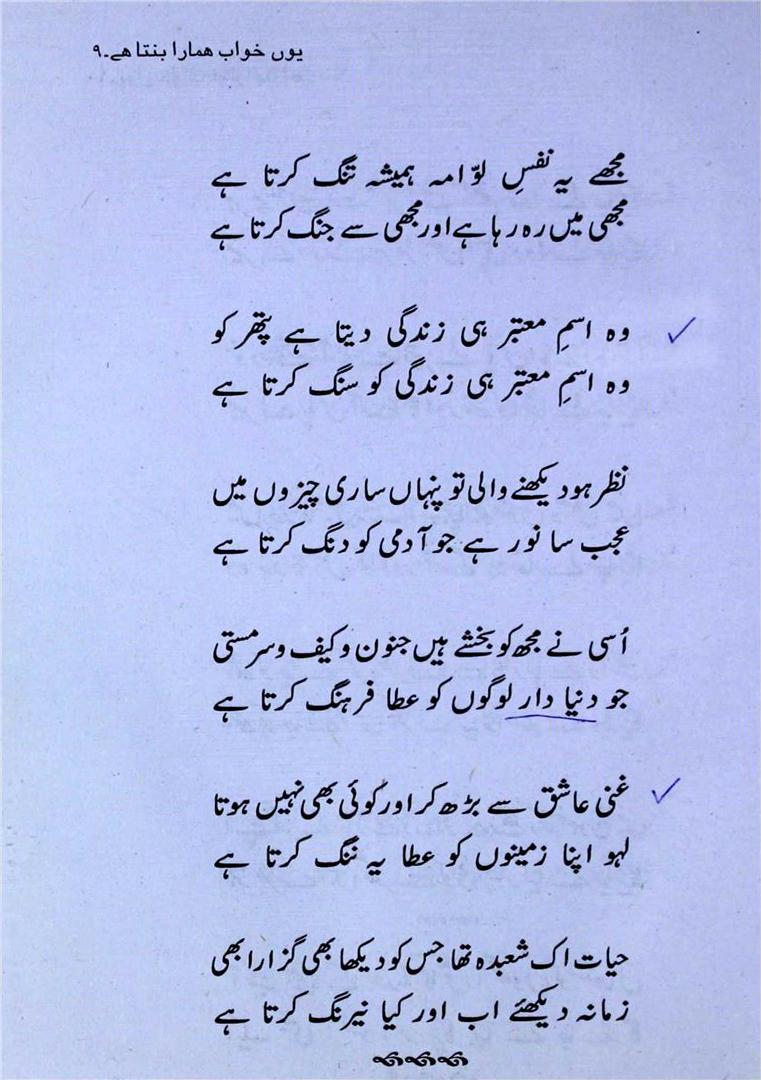 یوں خواب ہمارا بنتا ہے۔۹
مجھے یہ نفسِ لوّامہ ہمیشہ تنگ کرتا ہے
مجھی میں رہ رہا ہے اور مجھی سے جنگ کرتا ہے
وہ اسمِ معتبر ہی زندگی دیتا ہے پتھر کو
وہ اسمِ معتبر ہی زندگی کو سنگ کرتا ہے
نظر ہو دیکھنے والی تو پنہاں ساری چیزوں میں
عجب سا نور ہے جو آدمی کو دنگ کرتا ہے
اُسی نے مجھ کو بخشے ہیں جنون و کیف و سرمستی
جو دنیا دار لوگوں کو عطا فرہنگ کرتا ہے
غنی عاشق سے بڑھ کر اور کوئی بھی نہیں ہوتا
لہو اپنا زمینوں کو عطا یہ ننگ کرتا ہے
حیات اک شعبدہ تھا جس کو دیکھا بھی گزارا بھی
زمانہ دیکھئے اب اور کیا نیرنگ کرتا ہے